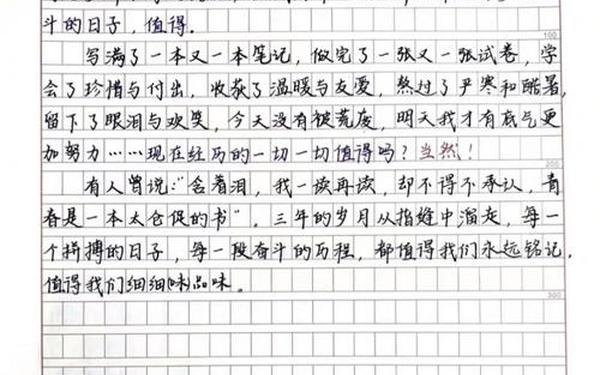 斗的日子，值得。
100
写满了一本又一本笔记，做完了一张又一张试卷，学
会了珍惜与付出，收获了温暖与友爱，熬过了严寒和酷暑，
留下了眼泪与欢笑，今天没有被荒废，明天我才有底气更
加努力……现在经历的一切一切值得吗？当然！
200
有人曾说：“含着泪，我一读再读，却不得不承认，青
春是一本太仓促的书”。三年的岁月从指缝中溜走，每一
个拼搏的日子，每一段奋斗的历程，都值得我们永远铭记，
值得我们细细品味。
300